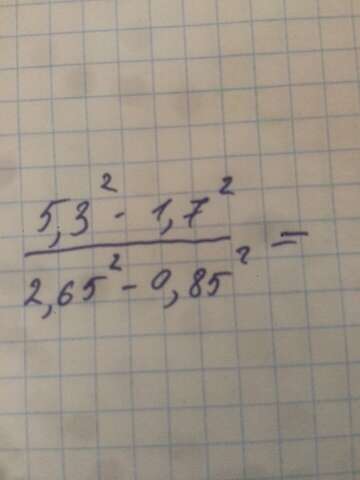 5,3² - 1,7²
2,65² - 0,85² =